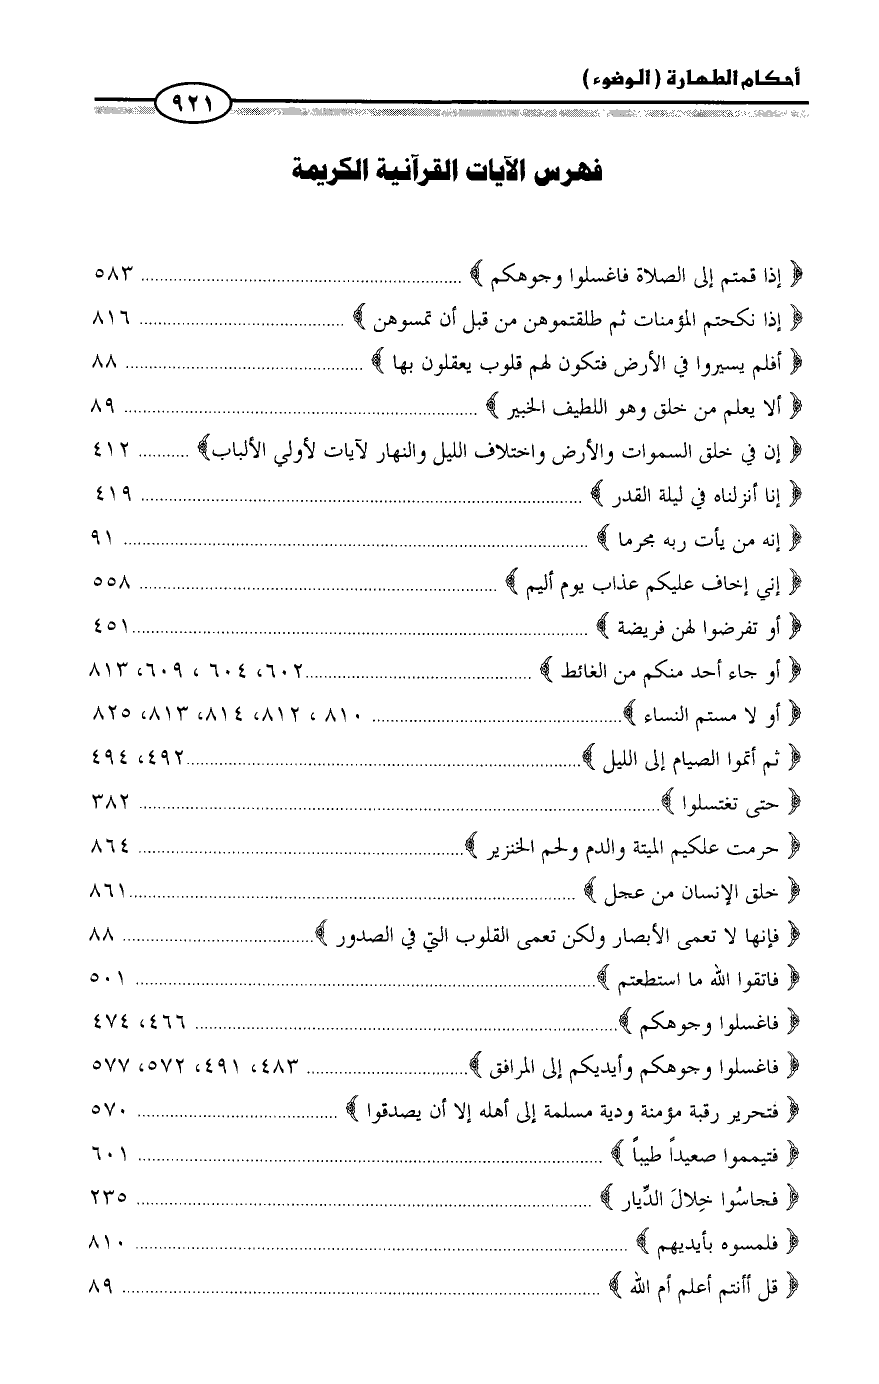 أحكام الطهارة (الوضوء)
٩٢١
فهرس الآيات القرآنية الكريمة
﴿ إذا قمتم إلى الصلاة فاغسلوا وجوهكم ﴾ ........ ٥٨٣
﴿ إذا نكحتم المؤمنات ثم طلقتموهن من قبل أن تمسوهن ﴾ ........ ٨١٦
﴿ أفلم يسيروا في الأرض فتكون لهم قلوب يعقلون بها ﴾ ........ ٨٨
﴿ ألا يعلم من خلق وهو اللطيف الخبير ﴾ ........ ٨٩
﴿ إن في خلق السموات والأرض واختلاف الليل والنهار لآيات لأولي الألباب﴾ ........ ٤١٢
﴿ إنا أنزلناه في ليلة القدر ﴾ ........ ٤١٩
﴿ إنه من يأت ربه مجرما ﴾ ........ ٩١
﴿ إني إخاف عليكم عذاب يوم أليم ﴾ ........ ٥٥٨
﴿ أو تفرضوا لهن فريضة ﴾ ........ ٤٥١
﴿ أو جاء أحد منكم من الغائط ﴾ ........ ٦٠٢، ٦٠٤ ، ٦٠٩، ٨١٣
﴿ أو لا مستم النساء ﴾ ........ ٨١٠ ، ٨١٢، ٨١٤، ٨١٣، ٨٢٥
﴿ ثم أتموا الصيام إلى الليل ﴾ ........ ٤٩٢، ٤٩٤
﴿ حتى تغتسلوا ﴾ ........ ٣٨٢
﴿ حرمت علكيم الميتة والدم ولحم الخنزير ﴾ ........ ٨٦٤
﴿ خلق الإنسان من عجل ﴾ ........ ٨٦١
﴿ فإنها لا تعمى الأبصار ولكن تعمى القلوب التي في الصدور ﴾ ........ ٨٨
﴿ فاتقوا الله ما استطعتم ﴾ ........ ٥٠١
﴿ فاغسلوا وجوهكم ﴾ ........ ٤٦٦، ٤٧٤
﴿ فاغسلوا وجوهكم وأيديكم إلى المرافق ﴾ ........ ٤٨٣، ٤٩١، ٥٧٢، ٥٧٧
﴿ فتحرير رقبة مؤمنة ودية مسلمة إلى أهله إلا أن يصدقوا ﴾ ........ ٥٧٠
﴿ فتيمموا صعيداً طيباً ﴾ ........ ٦٠١
﴿ فجاسُوا خِلالَ الدِّيار ﴾ ........ ٢٣٥
﴿ فلمسوه بأيديهم ﴾ ........ ٨١٠
﴿ قل أأنتم أعلم أم الله ﴾ ........ ٨٩